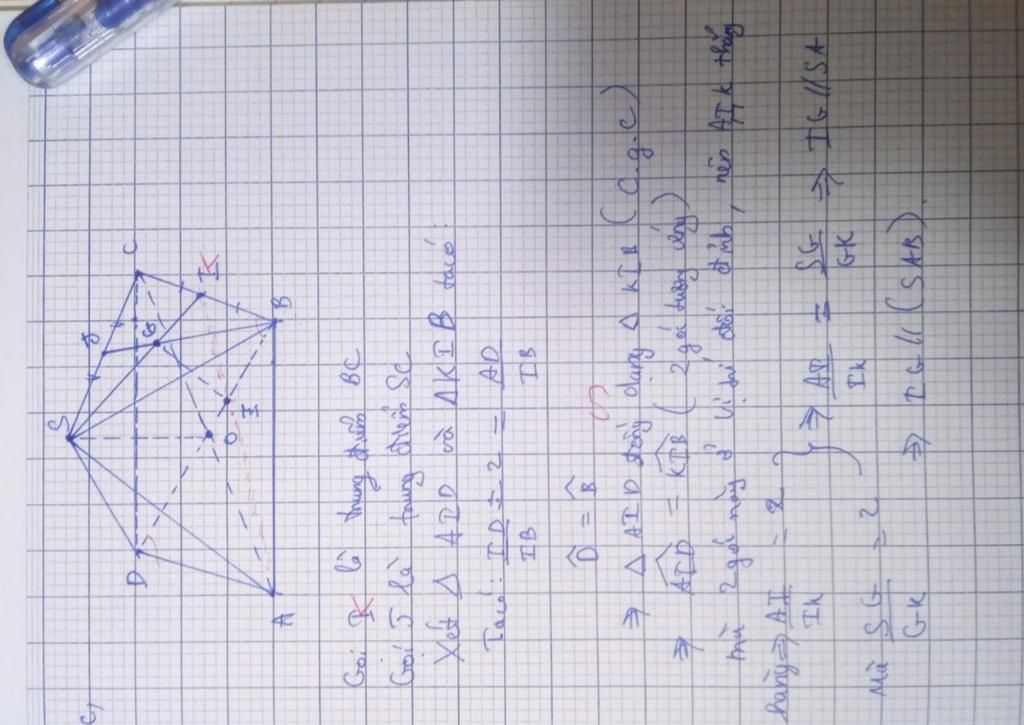 c,
S
J
C
D
G
K
O
I
B
A
Gọi K là trung điểm BC
Gọi J là trung điểm SC
Xét Δ AID và ΔKIB ta có:
Ta có: ID/IB = 2 = AD/IB
D̂ = B̂
⇒ Δ AID đồng dạng Δ KIB (C.g.C)
S
⇒ AID = KIB (2 góc tương ứng)
mà 2 góc này ở vị trí đối đỉnh, nên A,I,K thẳng
hàng ⇒ AI/IK = 2
Mà SG/GK = 2
} ⇒ AI/IK = SG/GK ⇒ IG // SA
⇒ IG // (SAB).